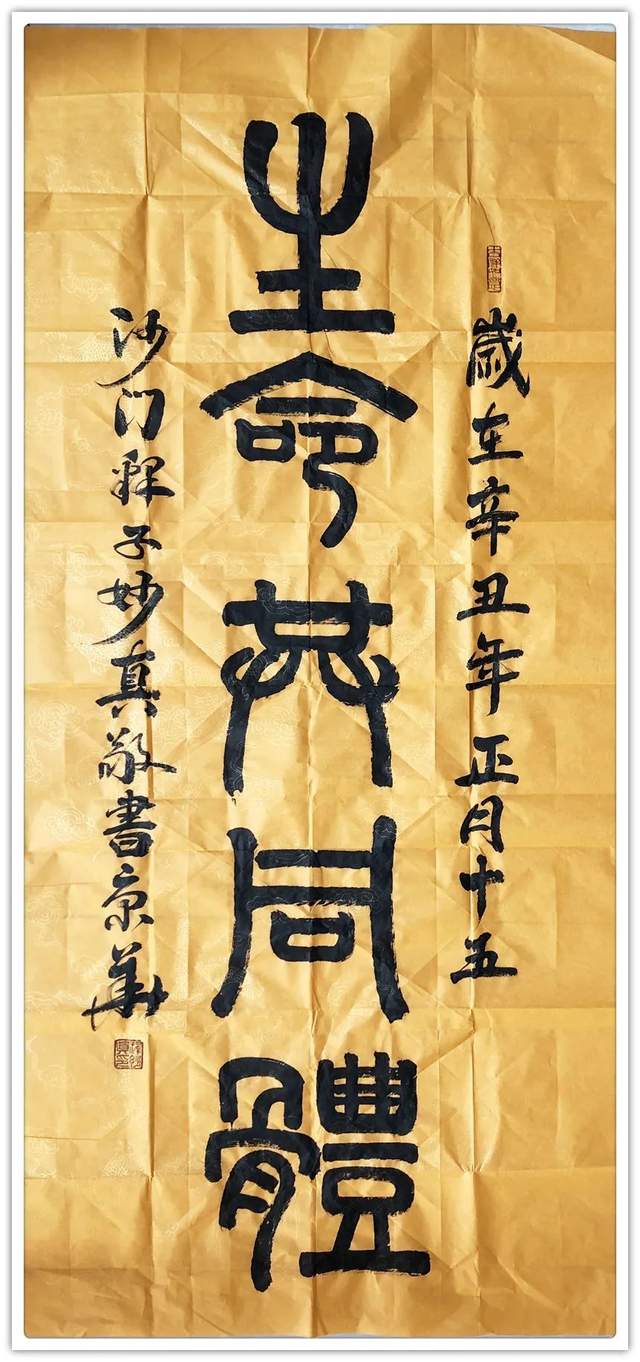 歲在辛丑年正月十五
生命共同體
沙门釋子妙真敬書京華